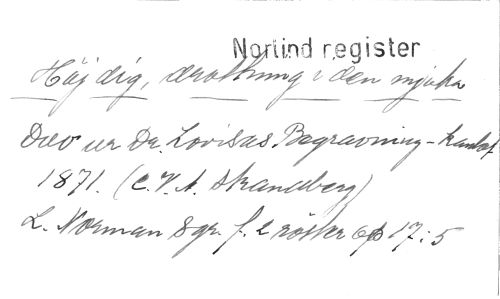 Norlind register
Höj dig, drottning i den mjuka
Duo ur Dr. Lovisas Begravning-kantat
1871. (C.V.A. Strandberg)
L. Norman 8gr. f. 2 röster op 17:5